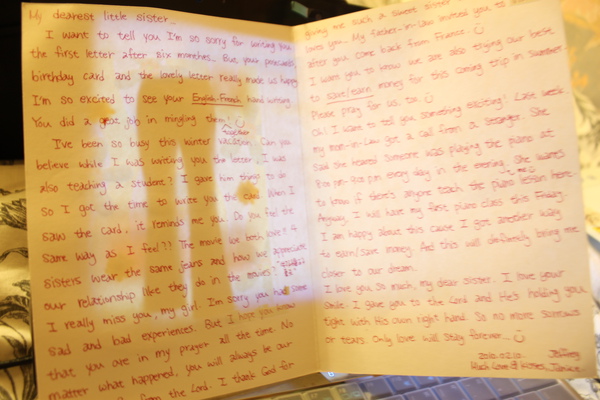 My dearest little sister...
I want to tell you I'm so sorry for writing you
the first letter after six months... But, your postcards,
birthday card and the lovely letter really made us happy
I'm so excited to see your English-French hand writing.
You did a great job in mingling them!
I've been so busy this winter vacation. Can you
believe while I was writing you the letter, I was
also teaching a student? I gave him things to do
so I got the time to write you the card. When I
saw the card, it reminds me you. Do you feel the
same way as I feel?? The movie we both love! 4
sisters wear the same jeans and how we appreciate
our relationship like they do in the movies?
I really miss you, my girl. I'm sorry you had some
sad and bad experiences. But I hope you know
that you are in my prayer all the time. No
matter what happened, you will always be our
from the Lord. I thank God for
giving me such a sweet sister
loves you... My father-in-law invited you to
after you come back from France.
I want you to know we are also trying our best
to save/earn money for this coming trip in summer.
Please pray for us, too.
Oh! I want to tell you something exciting! Last week
my mom-in-law got a call from a stranger. She
said she heard someone was playing the piano at
8:00 pm-9:00 pm every day in the evening. She wants
to know if there's anyone teach the piano lesson here.
Anyway, I will have my first piano class this Friday.
I am happy about this cause I got another way
to earn/save money. And this will definitely bring me
closer to our dream.
I love you so much, my dear sister. I love your
smile. I gave you to the Lord and He's holding you
tight with His own right hand. So no more sorrows
or tears. Only love will stay forever...
2010.02.10.
Much Love & Kisses, Janice